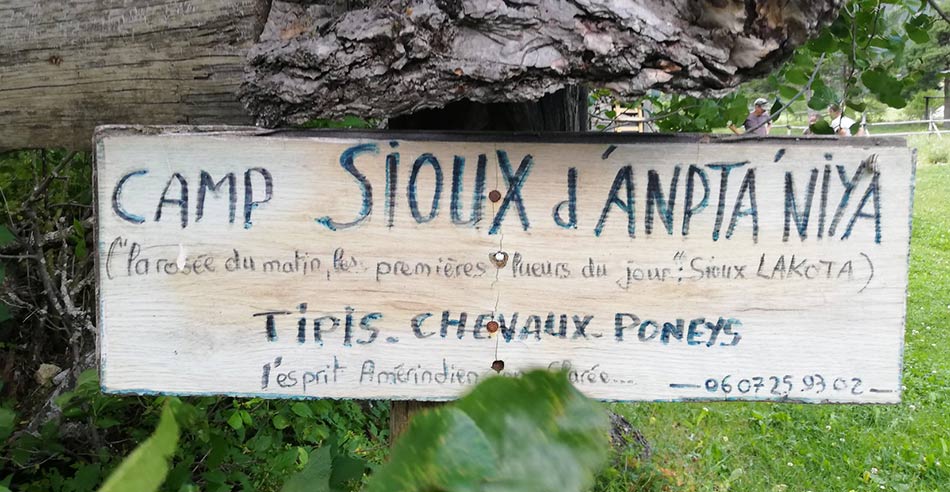 CAMP SIOUX d'ANPTA'NIYA
("la rosée du matin, les premières lueurs du jour": Sioux LAKOTA)
TIPIS - CHEVAUX - PONEYS
l'esprit Amérindien Clarée....
— 06 07 25 93 02 —